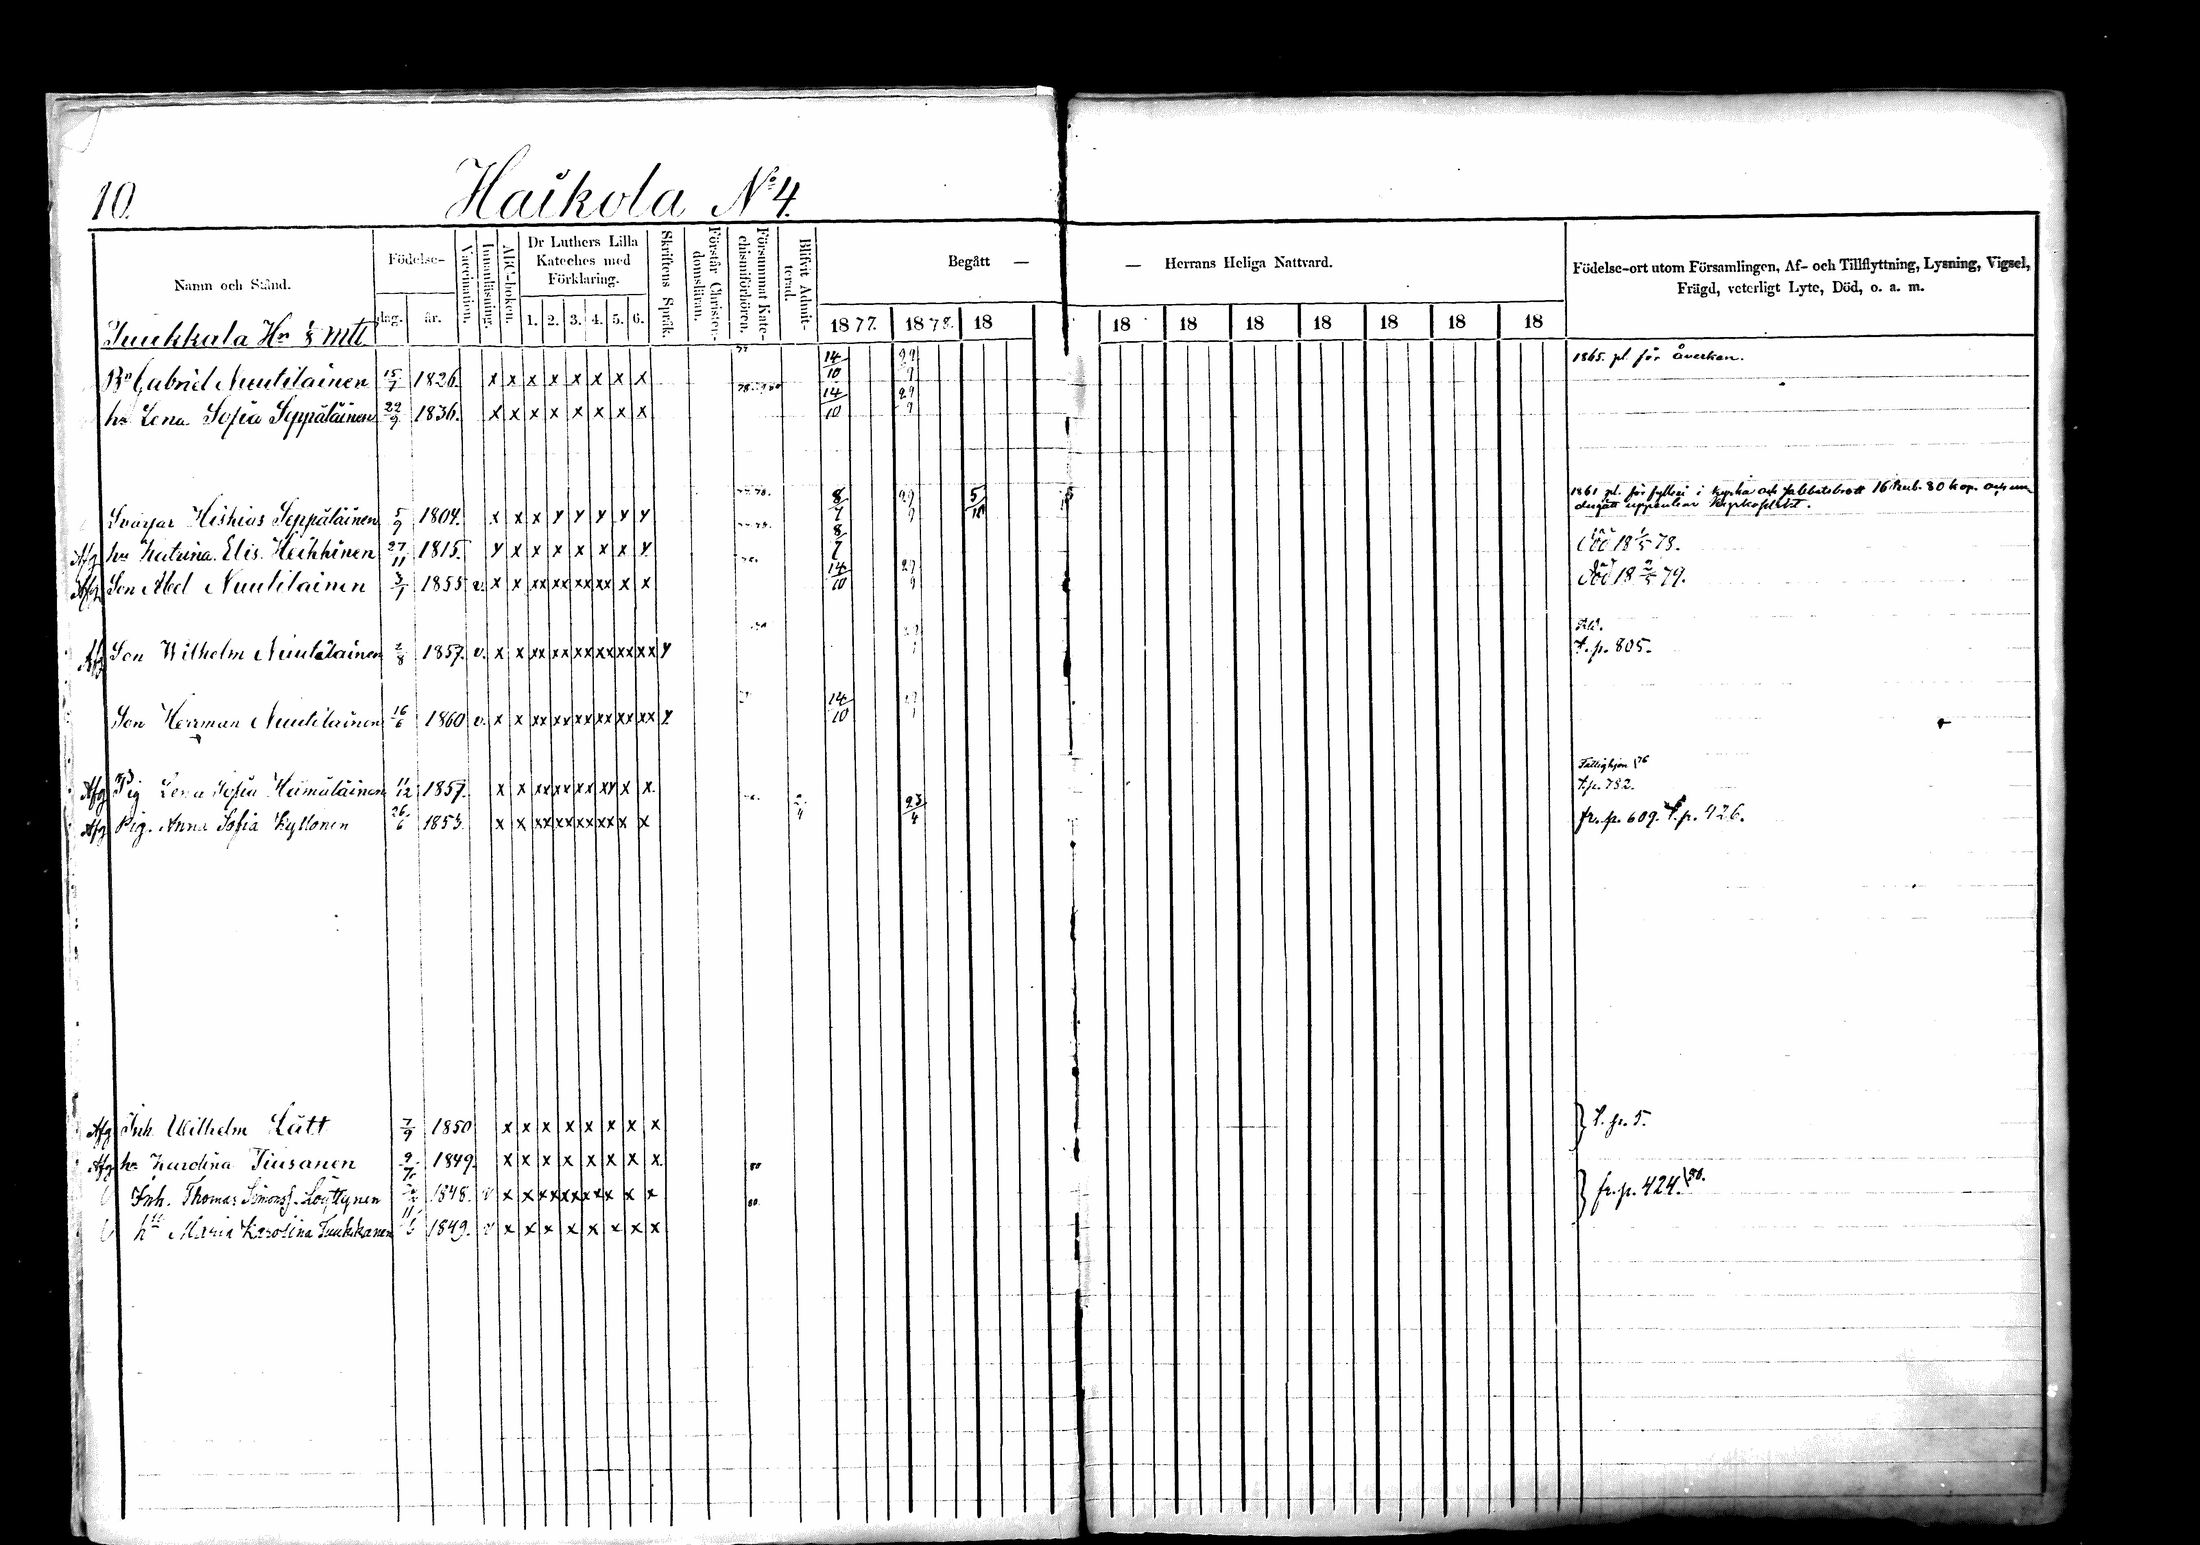 10. Haikola No 4.
Namn och Stånd.
Födelse-
dag. år.
Vaccination.
Innanläsning.
ABC-boken.
Dr Luthers Lilla
Kateches med
Förklaring.
1. 2. 3. 4. 5. 6.
Skriftens Språk.
Förstår Christen-
domsläran.
Försummat Kate-
chismiförhören.
Blifvit Admit-
terad.
Begått — — Herrans Heliga Nattvard.
1877. 1878. 18 18 18 18 18 18 18 18
Födelse-ort utom Församlingen, Af- och Tillflyttning, Lysning, Vigsel,
Frägd, veterligt Lyte, Död, o. a. m.
Gabriel Nuutilainen 15/7 1826. x x x x x x x x 14/10 29/9 1865. pl. för åverkan.
hu Lena Sofia Seppäläinen 22/9 1836. x x x x x x x x 14/10 29/9
Svärfar Hiskias Seppäläinen 5/9 1804. x x x y y y y y 8/7 29/9 5/10 1861 pl. för fylleri i kyrka och sabbatsbrott 16 Rub. 80 kop. och un
dergått uppenbar Kyrkoplikt.
Afg hu Katrina Elis. Heikkinen 27/11 1815. y x x x x x x y 8/7 död 18 1/5 78.
Afg Son Abel Nuutilainen 3/1 1855 v. x x xx xx xx xx x x 14/10 29/9 död 18 2/5 79.
Afg Son Wilhelm Nuutilainen 2/8 1857. v. x x xx xx xx xx xx xx y t. p. 805.
Son Herman Nuutilainen 16/6 1860 v. x x xx xx xx xx xx xx y 14/10
Fattighjon 76
Afg Pig Lena Sofia Hämäläinen 11/12 1857. x x xx xx xx xy x x t. p. 782.
Afg Pig. Anna Sofia Kyllönen 26/6 1853. x x xx xx xx xx x x 23/4 fr. p. 609. t. p. 426.
Afg Inh Wilhelm Lätt 7/9 1850 x x x x x x x x t. p. 5.
Afg hu Karolina Tiusanen 1849. x x x x x x x x 80
Inh. Thomas Simonss. Löyttynen 1848. v x x xx xx xx xx x x 80. fr. p. 424. 80.
hu Maria Karolina Tuukkanen 11/6 1849. v x x x x x x x x